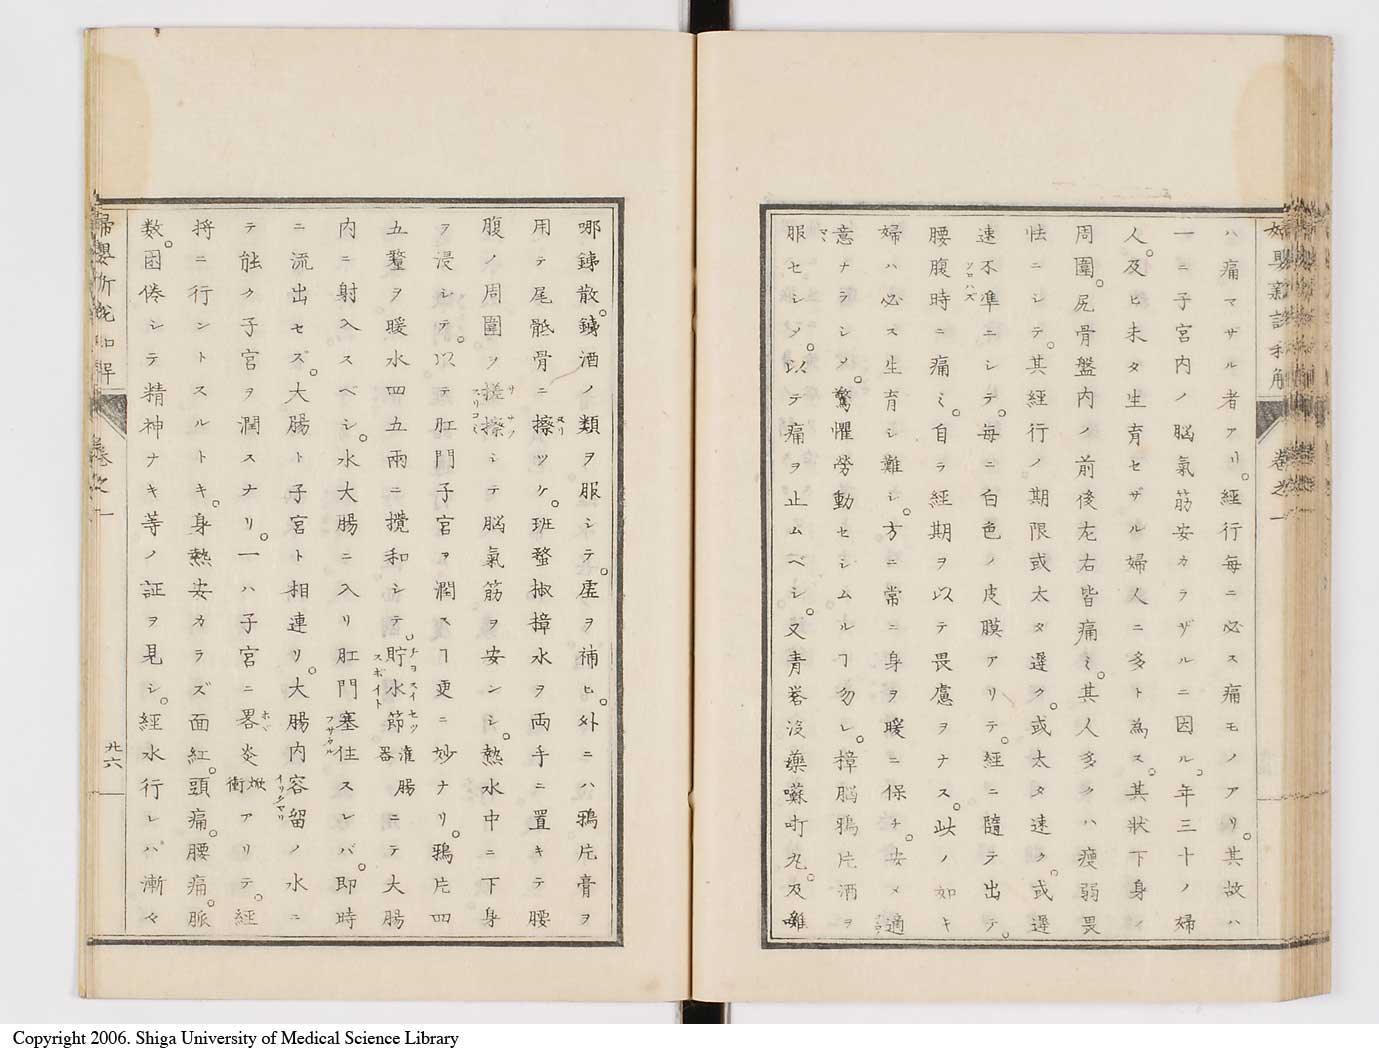 婦嬰新説和解 卷之一
ハ痛マサル者アリ。經行每ニ必ス痛モノアリ。其故ハ
一ニ子宮内ノ脳氣筋安カラザルニ因ル。年三十ノ婦
人。及ヒ未タ生育セザル婦人ニ多ト為ス。其状下身ノ
周圍。尻骨盤内ノ前後左右皆痛ミ。其人多クハ瘦弱畏
怯ニシテ。其經行ノ期限或太タ遲ク。或太タ速ク。或遲
速不準ニシテ。每ニ白色ノ皮膜アリテ。經ニ隨テ出テ。
ソロハズ
腰腹時ニ痛ミ。自ラ經期ヲ以テ畏慮ヲナス。此ノ如キ
婦ハ必ス生育シ難シ。方ニ常ニ身ヲ暖ニ保チ。安メ適
意ナラシメ。驚懼勞動セシムルヿ勿レ。樟脳鴉片酒ヲ
服セシメ。以テ痛ヲ止ムベシ。又青礬沒藥囌吖丸。及囉
哪銕散。銕酒ノ類ヲ服シテ。虛ヲ補ヒ。外ニハ鴉片膏ヲ
用テ尾骶骨ニ擦ツケ。班蝥椒樟水ヲ両手ニ置キテ腰
スリ
腹ノ周圍ヲ搓擦シテ脳氣筋ヲ安ンシ。熱水中ニ下身
スリコミ
ヲ浸シテ。以テ肛門子宮ヲ潤スヿ更ニ妙ナリ。鴉片四
五釐ヲ暖水四五兩ニ攪和シテ。貯水節灌腸器ニテ大腸
チヨスイセツ
スポイト
内ニ射入スベシ。水大腸ニ入リ肛門塞住スレバ。即時
フサガル
ニ流出セズ。大腸ト子宮ト相連リ。大腸内容留ノ水ニ
テ能ク子宮ヲ潤スナリ。一ハ子宮ニ畧炎焮衝アリテ。經
ホヾ
將ニ行ントスルトキ。身熱安カラズ面紅。頭痛。腰痛。脈
数。困倦シテ精神ナキ等ノ証ヲ見シ。經水行レハ漸々
婦嬰新説和解 卷之一 廿六
Copyright 2006. Shiga University of Medical Science Library